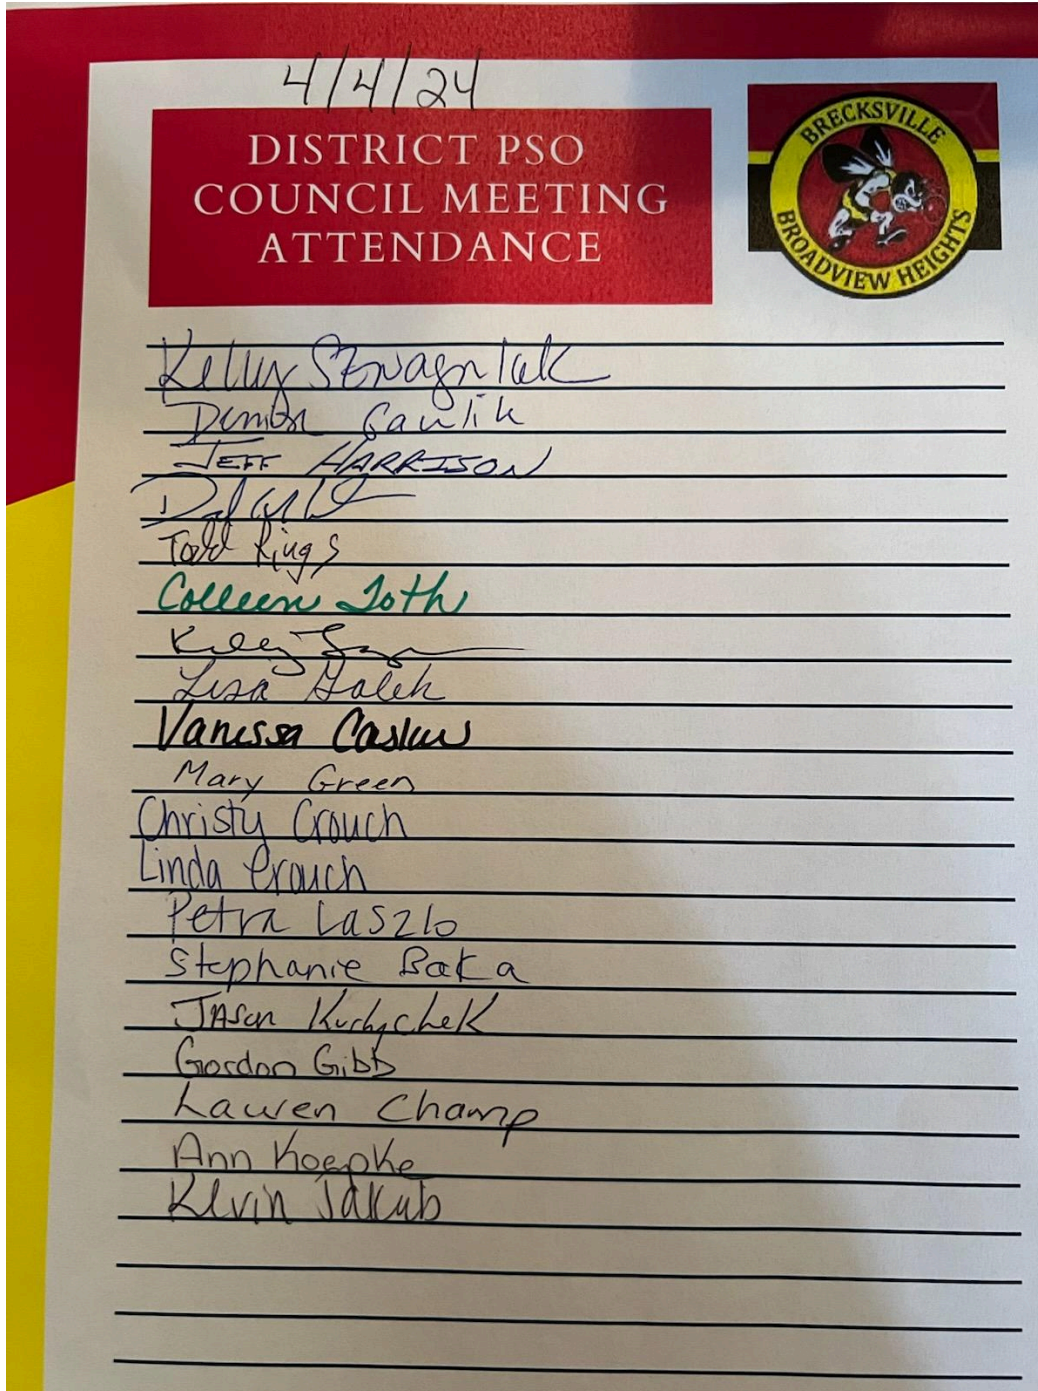 4/4/24
DISTRICT PSO
COUNCIL MEETING
ATTENDANCE
BRECKSVILLE
BROADVIEW HEIGHTS
Kelly Szwagulak
Gawlik
JEFF HARRISON
Todd Rings
Colleen Toth
Kelly
Lisa Galek
Vanessa
Mary Green
Christy Crouch
Linda Crouch
Petra Laszlo
Stephanie Baka
Jason Kurdychek
Gordon Gibb
Lauren Champ
Ann Koepke
Kevin Jakub